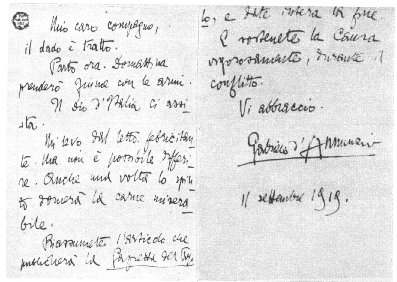 Mio caro compagno,
il dado è tratto.
Parto ora. Domattina
prenderò Fiume con le armi.
Il Dio d'Italia ci assi-
sta.
Mi levo dal letto febricitan-
te. Ma non è possibile differi-
re. Anche una volta lo spiri-
to domerà la carne misera-
bile.
Riassumete l'articolo che
pubblicherà la Gazzetta del Popo-
lo, e date intera la fine
E sostenete la Causa
vigorosamente, durante il
conflitto.
Vi abbraccio.
Gabriele d'Annunzio
11 settembre 1919.